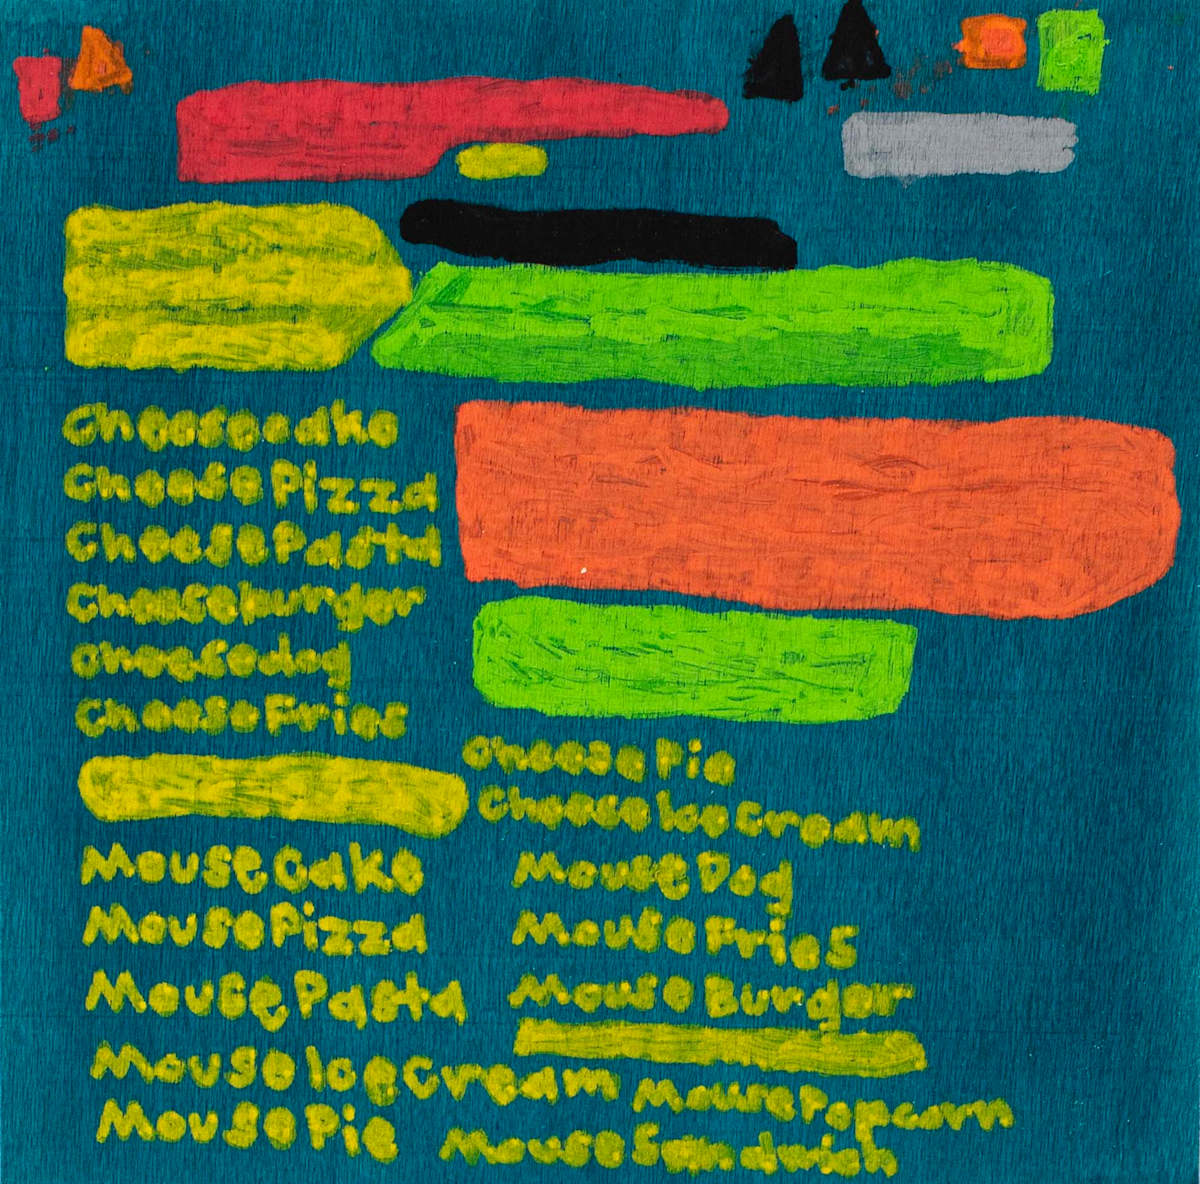 Cheesecake
Cheese Pizza
Cheese Pasta
Cheeseburger
Cheesedog
Cheese Fries
Cheese Pie
Cheese Ice Cream
Mouse Cake
Mouse Pizza
Mouse Pasta
Mouse Ice Cream
Mouse Pie
Mouse Dog
Mouse Fries
Mouse Burger
Mouse Popcorn
Mouse Sandwich